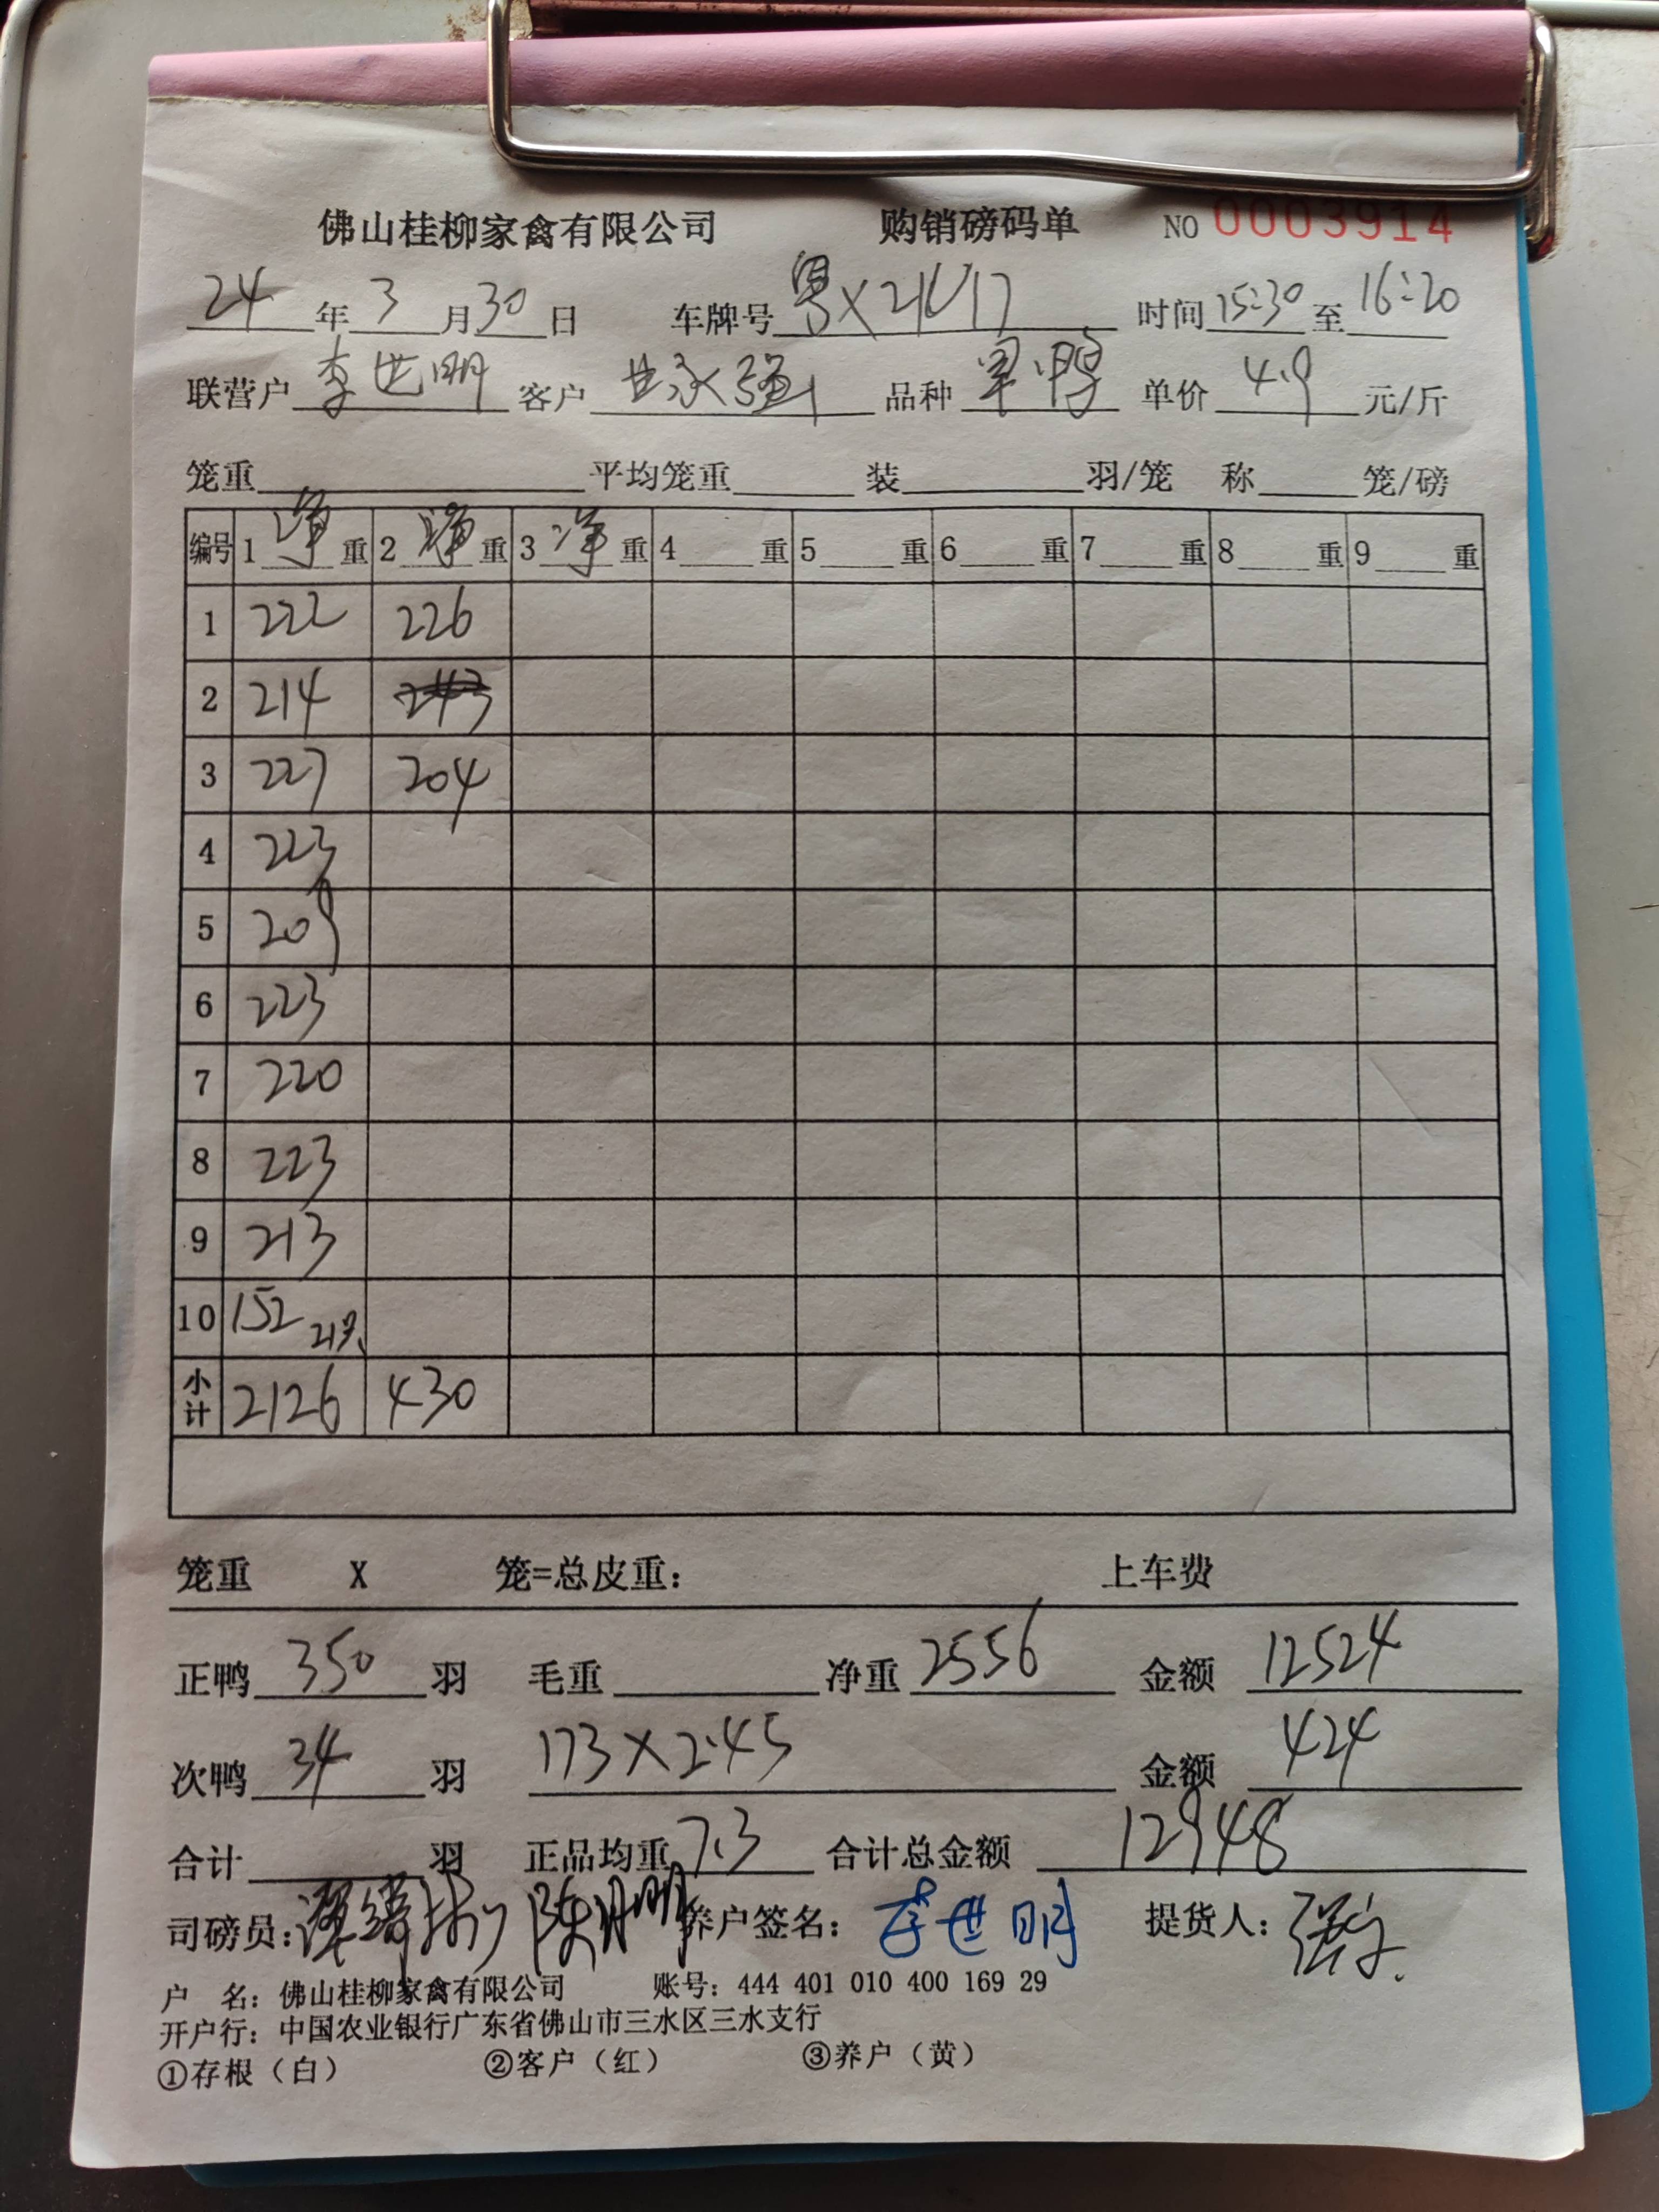 佛山桂柳家禽有限公司 购销磅码单 NO 0003914
24 年 3 月 30 日 车牌号 时间 15:30 至 16:20
联营户 李世明 客户 永强 品种 鸭 单价 4.9 元/斤
笼重 平均笼重 装 羽/笼 称 笼/磅
编号 1 净 重 2 净 重 3 净 重 4 重 5 重 6 重 7 重 8 重 9 重
1 222 226
2 214 243
3 227 204
4 223
5 209
6 223
7 220
8 223
9 213
10 152 21只
小计 2126 430
笼重 X 笼=总皮重： 上车费
正鸭 350 羽 毛重 净重 2556 金额 12524
次鸭 34 羽 173×2.45 金额 424
合计 羽 正品均重 7.3 合计总金额 12948
司磅员： 养户签名： 李世明 提货人：
户 名：佛山桂柳家禽有限公司 账号：444 401 010 400 169 29
开户行：中国农业银行广东省佛山市三水区三水支行
①存根（白） ②客户（红） ③养户（黄）